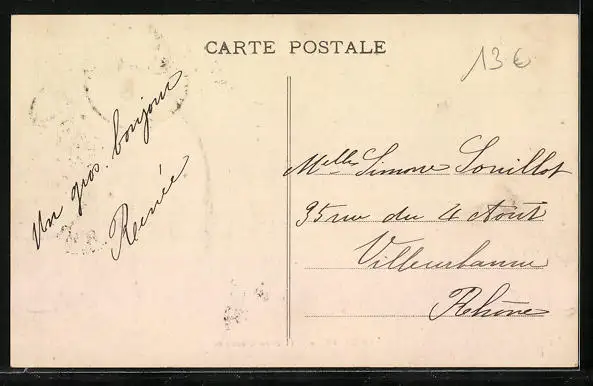 CARTE POSTALE
13 €
Un gros bonjour
Renée
Melle Simone Souillot
95 rue du 4 Août
Villeurbanne
Rhône